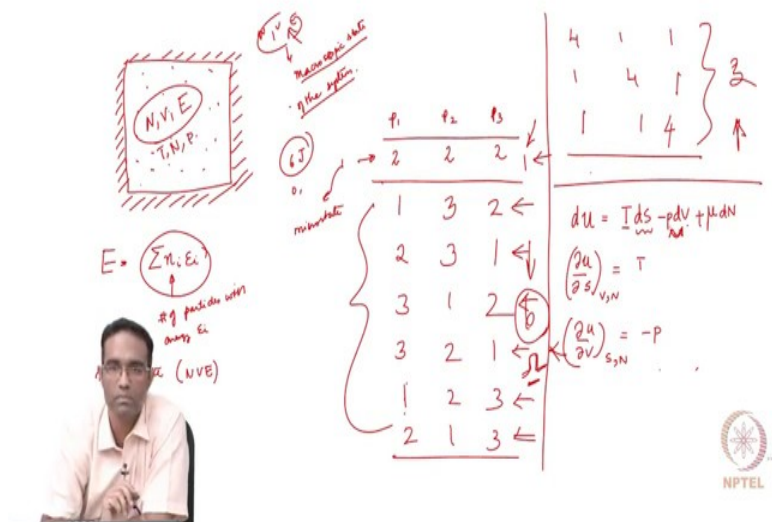 N, V, E
macroscopic state
of the system.
N, V, E
T, N, P.
6J
0,
microstate
E = Σ n_i ε_i
# of particles with
energy E_i
(NVE)
P₁ P₂ P₃
2 2 2 1
1 3 2
2 3 1
3 1 2
6
3 2 1
Ω
1 2 3
2 1 3
4 1 1
1 4 1
1 1 4
3
du = Tds - pdv + μdN
(∂u/∂s)_V,N = T
(∂u/∂v)_S,N = -P
NPTEL